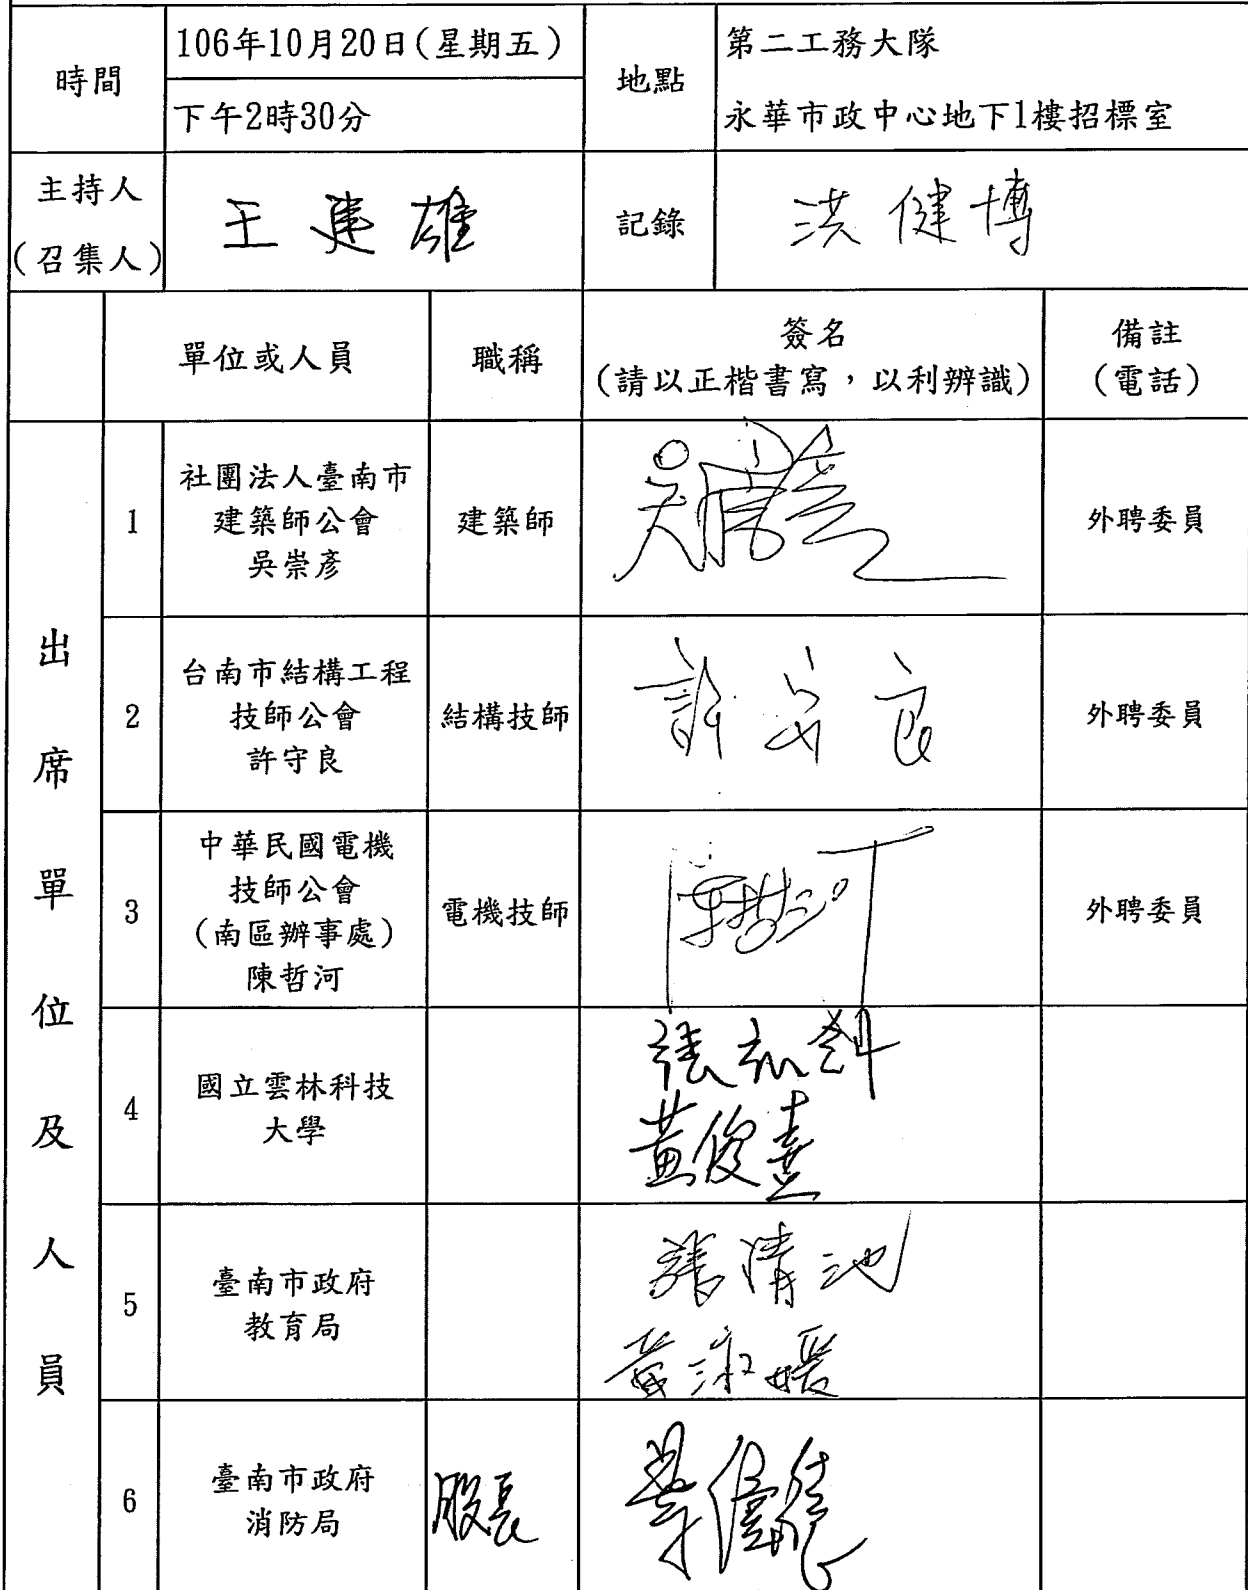 時間
106年10月20日(星期五)
下午2時30分
地點
第二工務大隊
永華市政中心地下1樓招標室
主持人
(召集人)
王建雄
記錄
洪健博
單位或人員
職稱
簽名
(請以正楷書寫,以利辨識)
備註
(電話)
出席單位及人員
1
社團法人臺南市
建築師公會
吳崇彥
建築師
吳崇彥
外聘委員
2
台南市結構工程
技師公會
許守良
結構技師
許守良
外聘委員
3
中華民國電機
技師公會
(南區辦事處)
陳哲河
電機技師
陳哲河
外聘委員
4
國立雲林科技
大學
黃俊熹
5
臺南市政府
教育局
張清池
黃淑媛
6
臺南市政府
消防局
股長